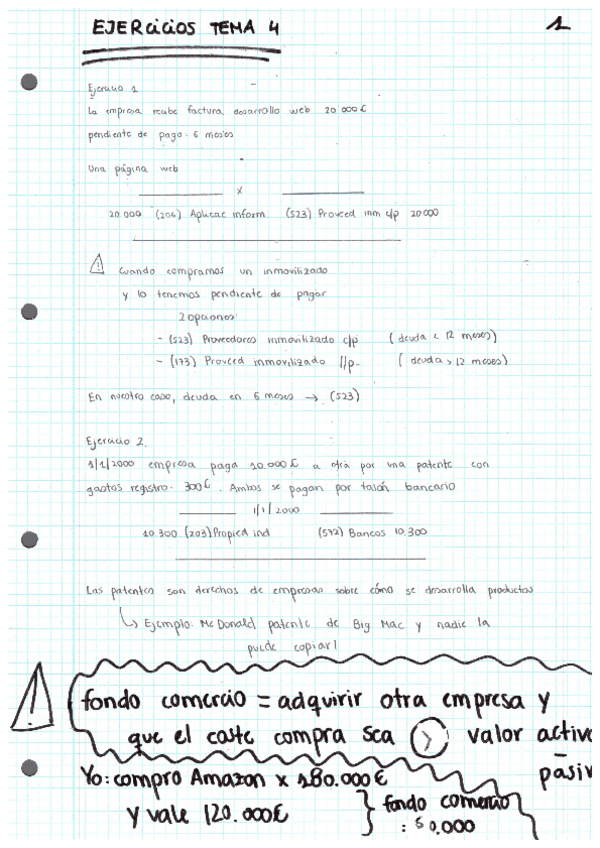 EJERcicios TEMA 4
1
Ejercicio 1
La empresa recibe factura desarrollo web 20 000 €
pendiente de pago: 6 meses
Una página web
x
20.000 (206) Aplicac inform (523) Proveed inm c/p 20000
⚠ Cuando compramos un inmovilizado
y lo tenemos pendiente de pagar
2 opciones:
- (523) Proveedores inmovilizado c/p (deuda < 12 meses)
- (173) Proveed inmovilizado l/p. (deuda > 12 meses)
En nuestro caso, deuda en 6 meses → (523)
Ejercicio 2.
1/1/2000 empresa paga 10.000 € a otra por una patente con
gastos registro: 300 €. Ambos se pagan por talón bancario
1/1/2000
10.300 (203) Propied ind (572) Bancos 10.300
Las patentes son derechos de empresas sobre cómo se desarrolla productos
↳ Ejemplo: McDonald patente de Big Mac y nadie la
puede copiar!
⚠ fondo comercio = adquirir otra empresa y
que el coste compra sea > valor activo
-
pasiv
Yo: compro Amazon x 180.000 €
y vale 120.000€ } fondo comercio
: 60.000